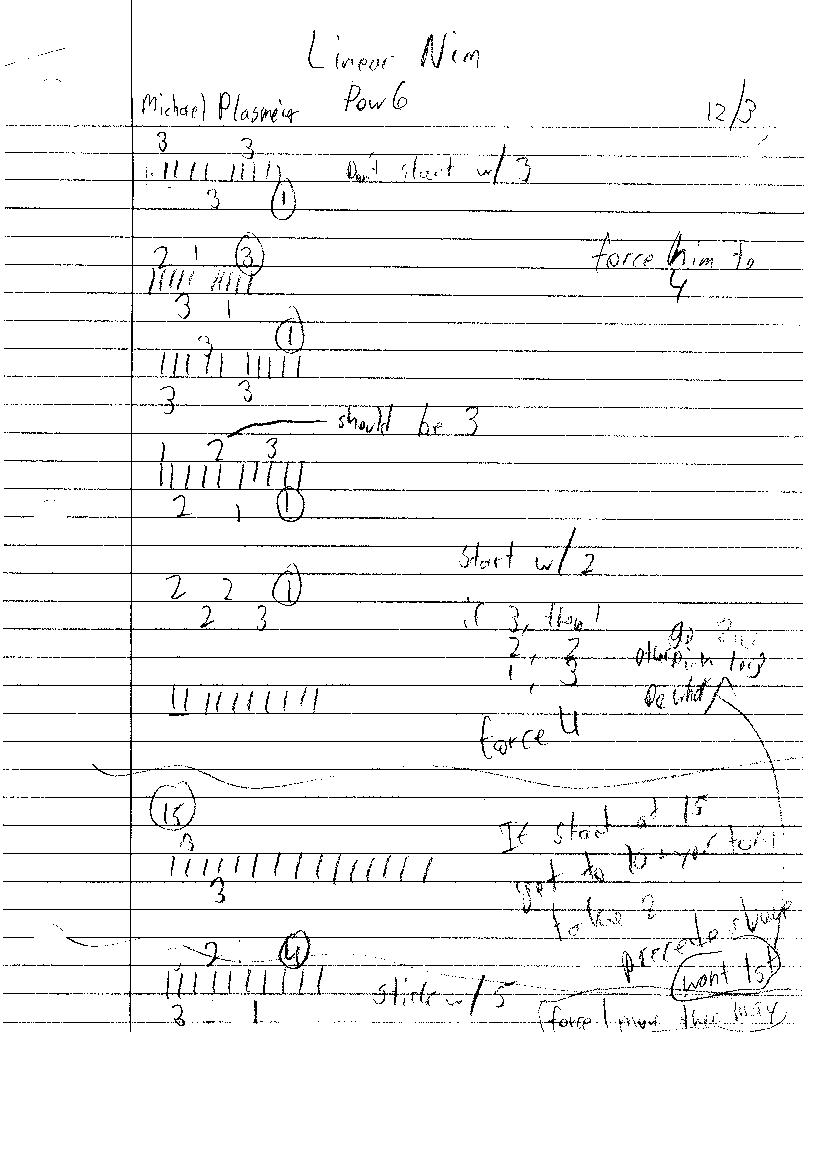 Linear Nim
Michael Plasmeier Pow 6 12/3
3 3
Don't start w/ 3
3 1
2 1 3
force him to
4
3 1
1
3
3 3
should be 3
1 2 3
2 1 1
start w/ 2
2 2 1
2 3
if 3, then 1
2, 2
1, 3
force 4
15
3
If start at 15
get to 10 on your turn
3
take 2
2 4
want 1st
stick w/ 5
3 1
force